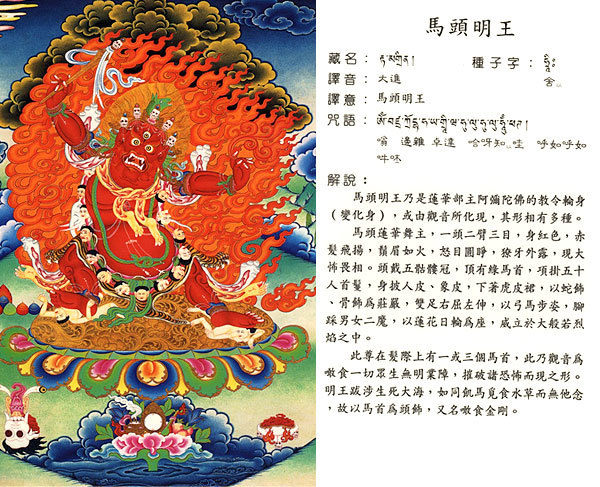 馬頭明王
藏名：རྟ་མགྲིན། 種子字：ཧྲཱིཿ
譯音：大進 舍
譯意：馬頭明王
咒語：ༀ་བཛྲ་ཀྲོདྷ་ཧ་ཡ་གྲཱི་ཝ་ཧུ་ལུ་ཧུ་ལུ་ཧཱུྃ་ཕཊ།
嗡 邊雜 卓達 哈呀知哇 呼如呼如
吽呸
解說：
馬頭明王乃是蓮華部主阿彌陀佛的教令輪身
（變化身），或由觀音所化現，其形相有多種。
身頭蓮華舞主，一頭二臂三目，身紅色，赤
髮飛揚，鬚眉如火，怒目圓睜，獠牙外露，現大
怖畏相。頭戴五骷髏冠，頂有綠馬首，項掛五十
人首鬘，身披人皮、象皮，下著虎皮裙，以蛇飾
、骨飾爲莊嚴，雙足右屈左伸，以弓馬步姿，腳
踩男女二魔，以蓮花日輪爲座，威立於大般若烈
焰之中。
此尊在髮際上有一或三個馬首，此乃觀音爲
噉食一切眾生無明業障，摧破諸恐怖而現之形。
明王跋涉生死大海，如同飢馬覓食水草而無他念
，故以馬首爲頭飾，又名噉食金剛。